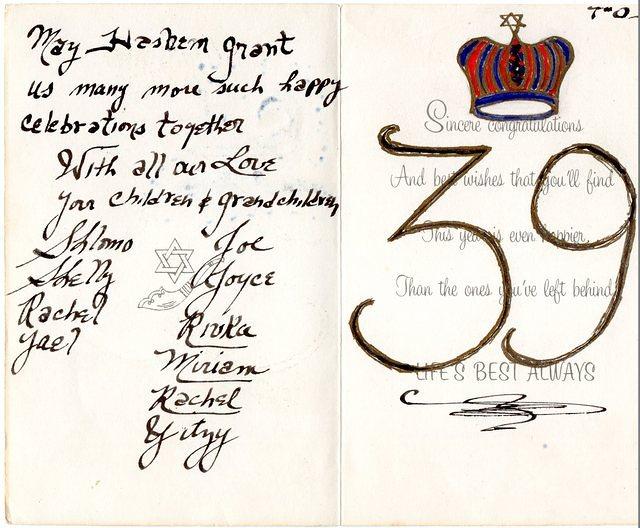 May Hashem grant
us many more such happy
celebrations together
With all our Love
your children & grandchildren
Shlomo
Shelly
Rachel
Yael
Joe
Joyce
Rivka
Miriam
Rachel
Yitzy
T-O-
Sincere congratulations
And best wishes that you'll find
This year is even happier,
Than the ones you've left behind
39
LIFE'S BEST ALWAYS